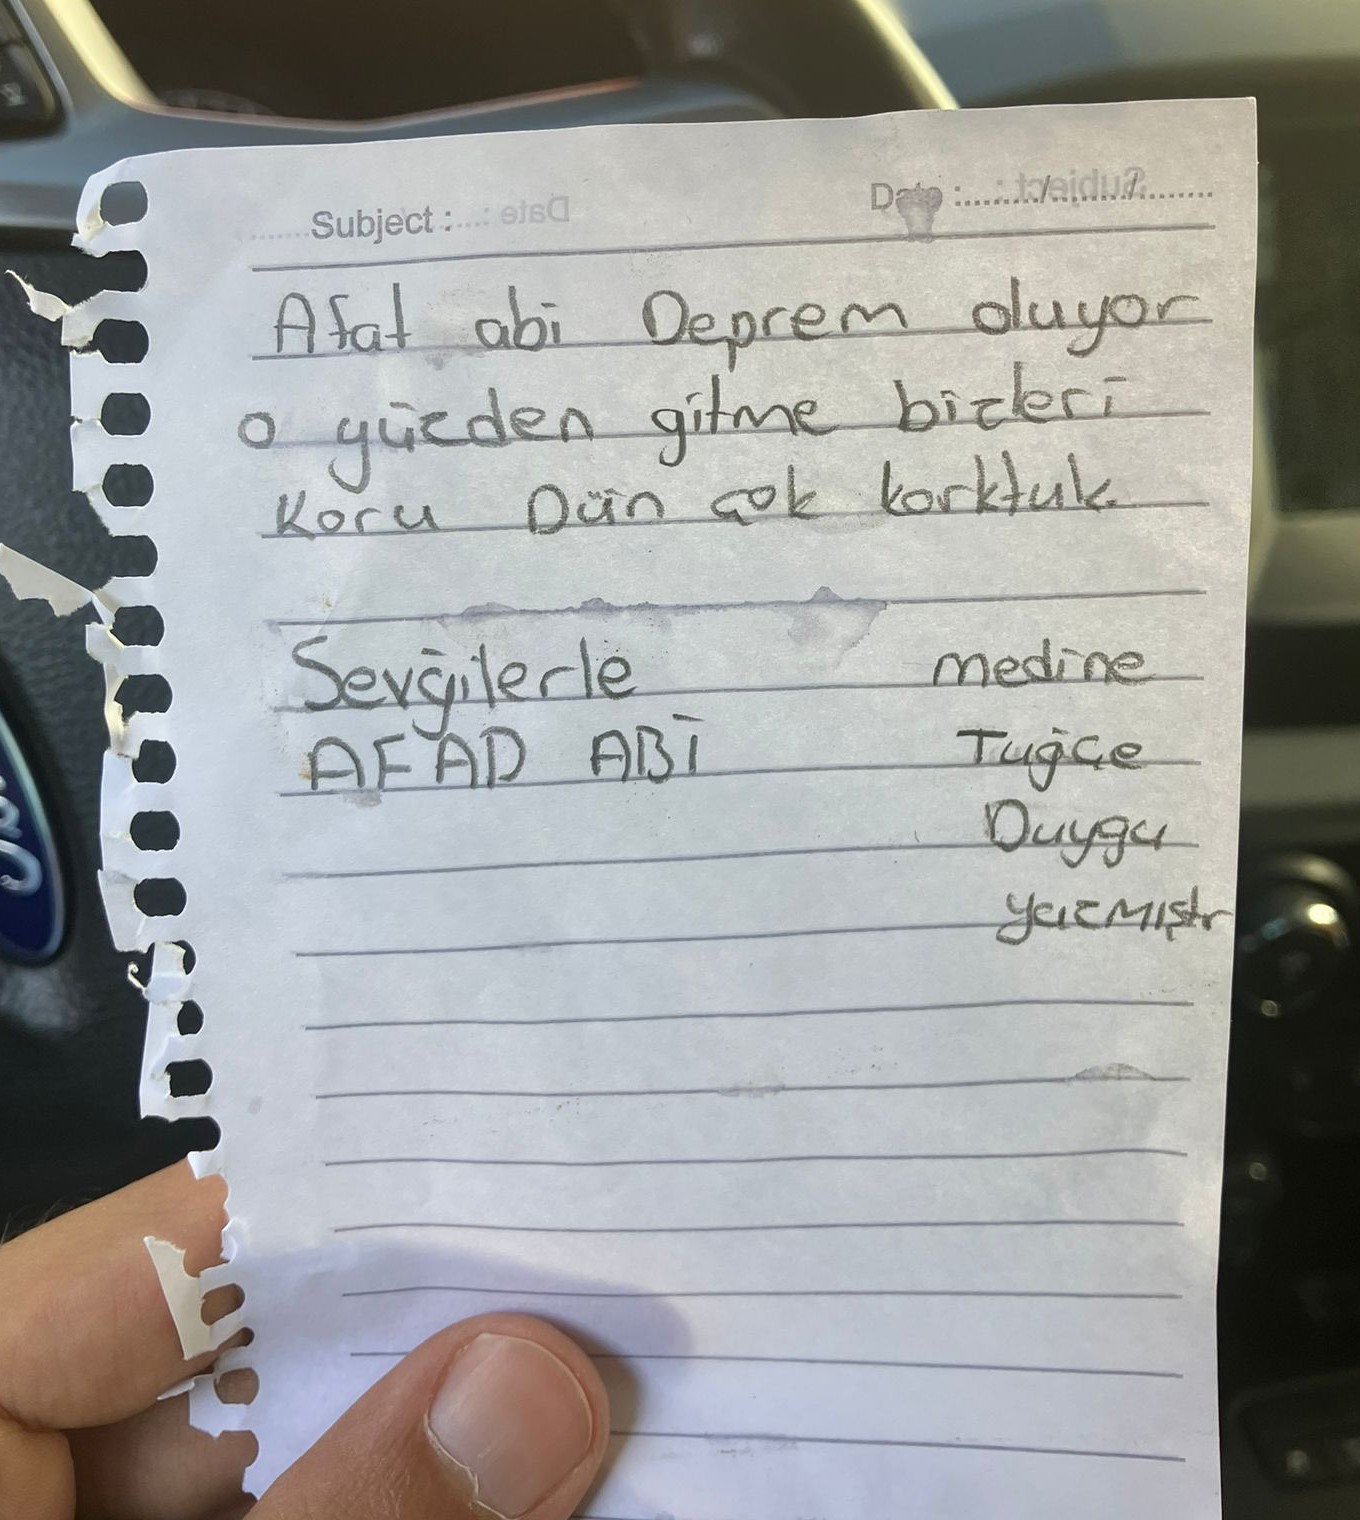 Subject : Date :....../....../......
Afat abi Deprem oluyor
o yüzden gitme bizleri
Koru Dün çok korktuk.
Sevğilerle medine
AFAD ABİ Tuğçe
Duygu
yazmıştr